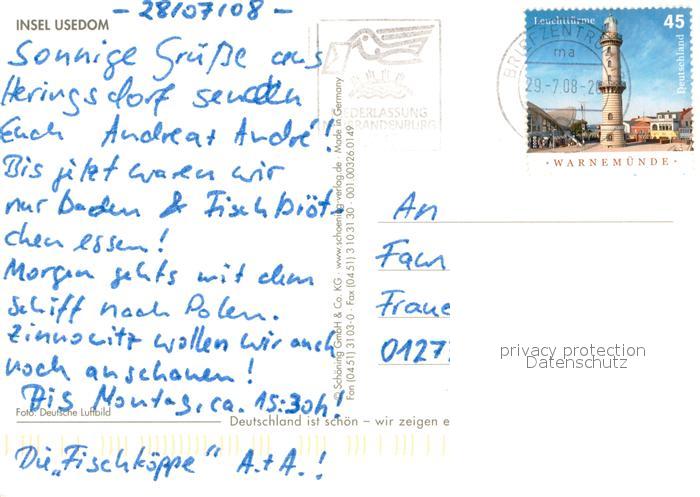 - 28/07/08 -
INSEL USEDOM
Sonnige Grüße aus
Heringsdorf senden
Euch Andrea + André!
Bis jetzt waren wir
nur Baden & Fischbröt-
chen essen!
Morgen gehts mit dem
Schiff nach Polen.
Zinnowitz wollen wir auch
noch anschauen!
Bis Montag, ca. 15:30h!
Foto: Deutsche Luftbild
Die "Fischköppe" A.+A.!
Deutschland ist schön – wir zeigen e
© Schöning GmbH & Co. KG · www.schoening-verlag.de · Made in Germany
Fon (0451) 3103-0 · Fax (0451) 3103130 · 001 00326 0149
BRIEFZENTRU
ma
29.-7.08-2
Leuchttürme
45
Deutschland
· WARNEMÜNDE ·
An
Fam
Fraue
0127
privacy protection
Datenschutz